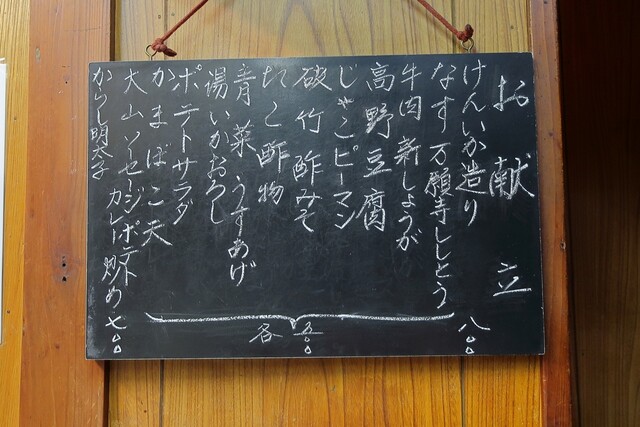 お献立
けんいか造り 八〇〇
なす 万願寺ししとう
牛肉 新しょうが
高野豆腐
じゃこピーマン
破竹酢みそ
たこ酢物
青菜うすあげ
湯いかおろし
ポテトサラダ
かまぼこ天
大山ソーセージ カレーポテト炒め 七〇〇
からし明太子
各 五〇〇